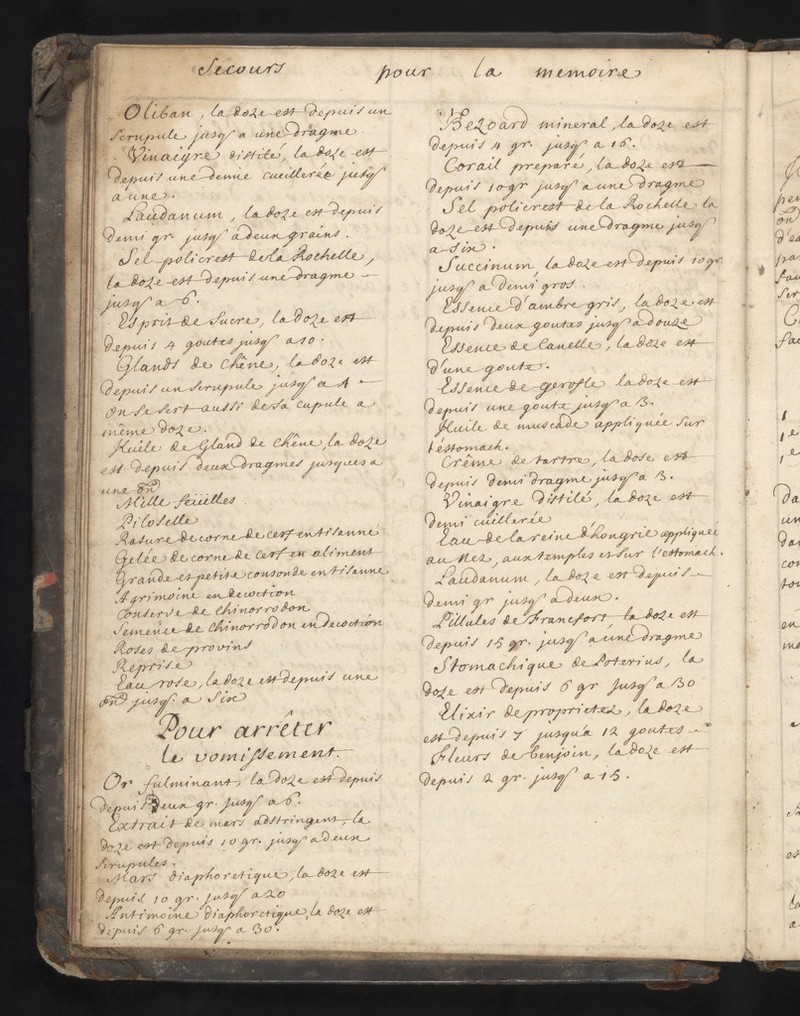 Secours pour la memoire
Oliban, la doze est depuis un
scrupule jusq' a une dragme
Vinaigre distilé, la doze est
depuis une demie cueillerée jusq'
a une.
Laudanum, la doze est depuis
demi gr. jusq' a deux grains.
Sel policrest de la Rochelle,
la doze est depuis une dragme
jusq' a 6.
Esprit de sucre, la doze est
depuis 4 goutes jusq' a 10.
Glands de chêne, la doze est
depuis un scrupule jusq' a 4
on se sert aussi de sa cupule a
même doze.
Huile de gland de chêne, la doze
est depuis deux dragmes jusques a
une on
Mille feüilles
Piloselle
Rasure de corne de cerf en tisanne
Gelée de corne de cerf en aliment
Grande et petite consonde en tisanne
Agrimoine en decoction
Conserve de chinorrodon
Semence de chinorrodon en decoction
Roses de provins
Reprise
Eau rose, la doze est depuis une
on jusq' a six
Pour arrêter
le vomissement.
Or fulminant, la doze est depuis
depuis deux gr. jusq' a 6.
Extrait de mars adstringent, la
doze est depuis 10 gr. jusq' a deux
scrupules.
Mars diaphoretique, la doze est
depuis 10 gr. jusq' a 20
Antimoine diaphoretique, la doze est
depuis 6 gr. jusq' a 30.
Bezoard mineral, la doze est
depuis 4 gr. jusq' a 16.
Corail preparé, la doze est
depuis 10 gr jusq' a une dragme
Sel policrest de la Rochelle la
doze est depuis une dragme jusq'
a six.
Succinum, la doze est depuis 10 gr.
jusq' a demi gros
Essence d'ambre gris, la doze est
depuis deux goutes jusq' a douze
Essence de Canelle, la doze est
d'une goute.
Essence de gerofle la doze est
depuis une goute jusq' a 3.
Huile de muscade appliquée sur
l'éstomach.
Crême de tartre, la dose est
depuis demi dragme jusq' a 3.
Vinaigre distilé, la doze est
demi cuillerée
Eau de la reine d'hongrie appliquée
au nez, aux temples et sur l'estomach.
Laudanum, la doze est depuis
demi gr jusq' a deux.
Pillules de Francfort la doze est
depuis 15 gr. jusq' a une dragme
Stomachique de Poterius, la
doze est depuis 6 gr jusq' a 30
Elixir de proprietez, la doze
est depuis 7 jusqu'a 12 goutes
Fleurs de benjoin, la doze est
depuis 2 gr. jusq' a 15.